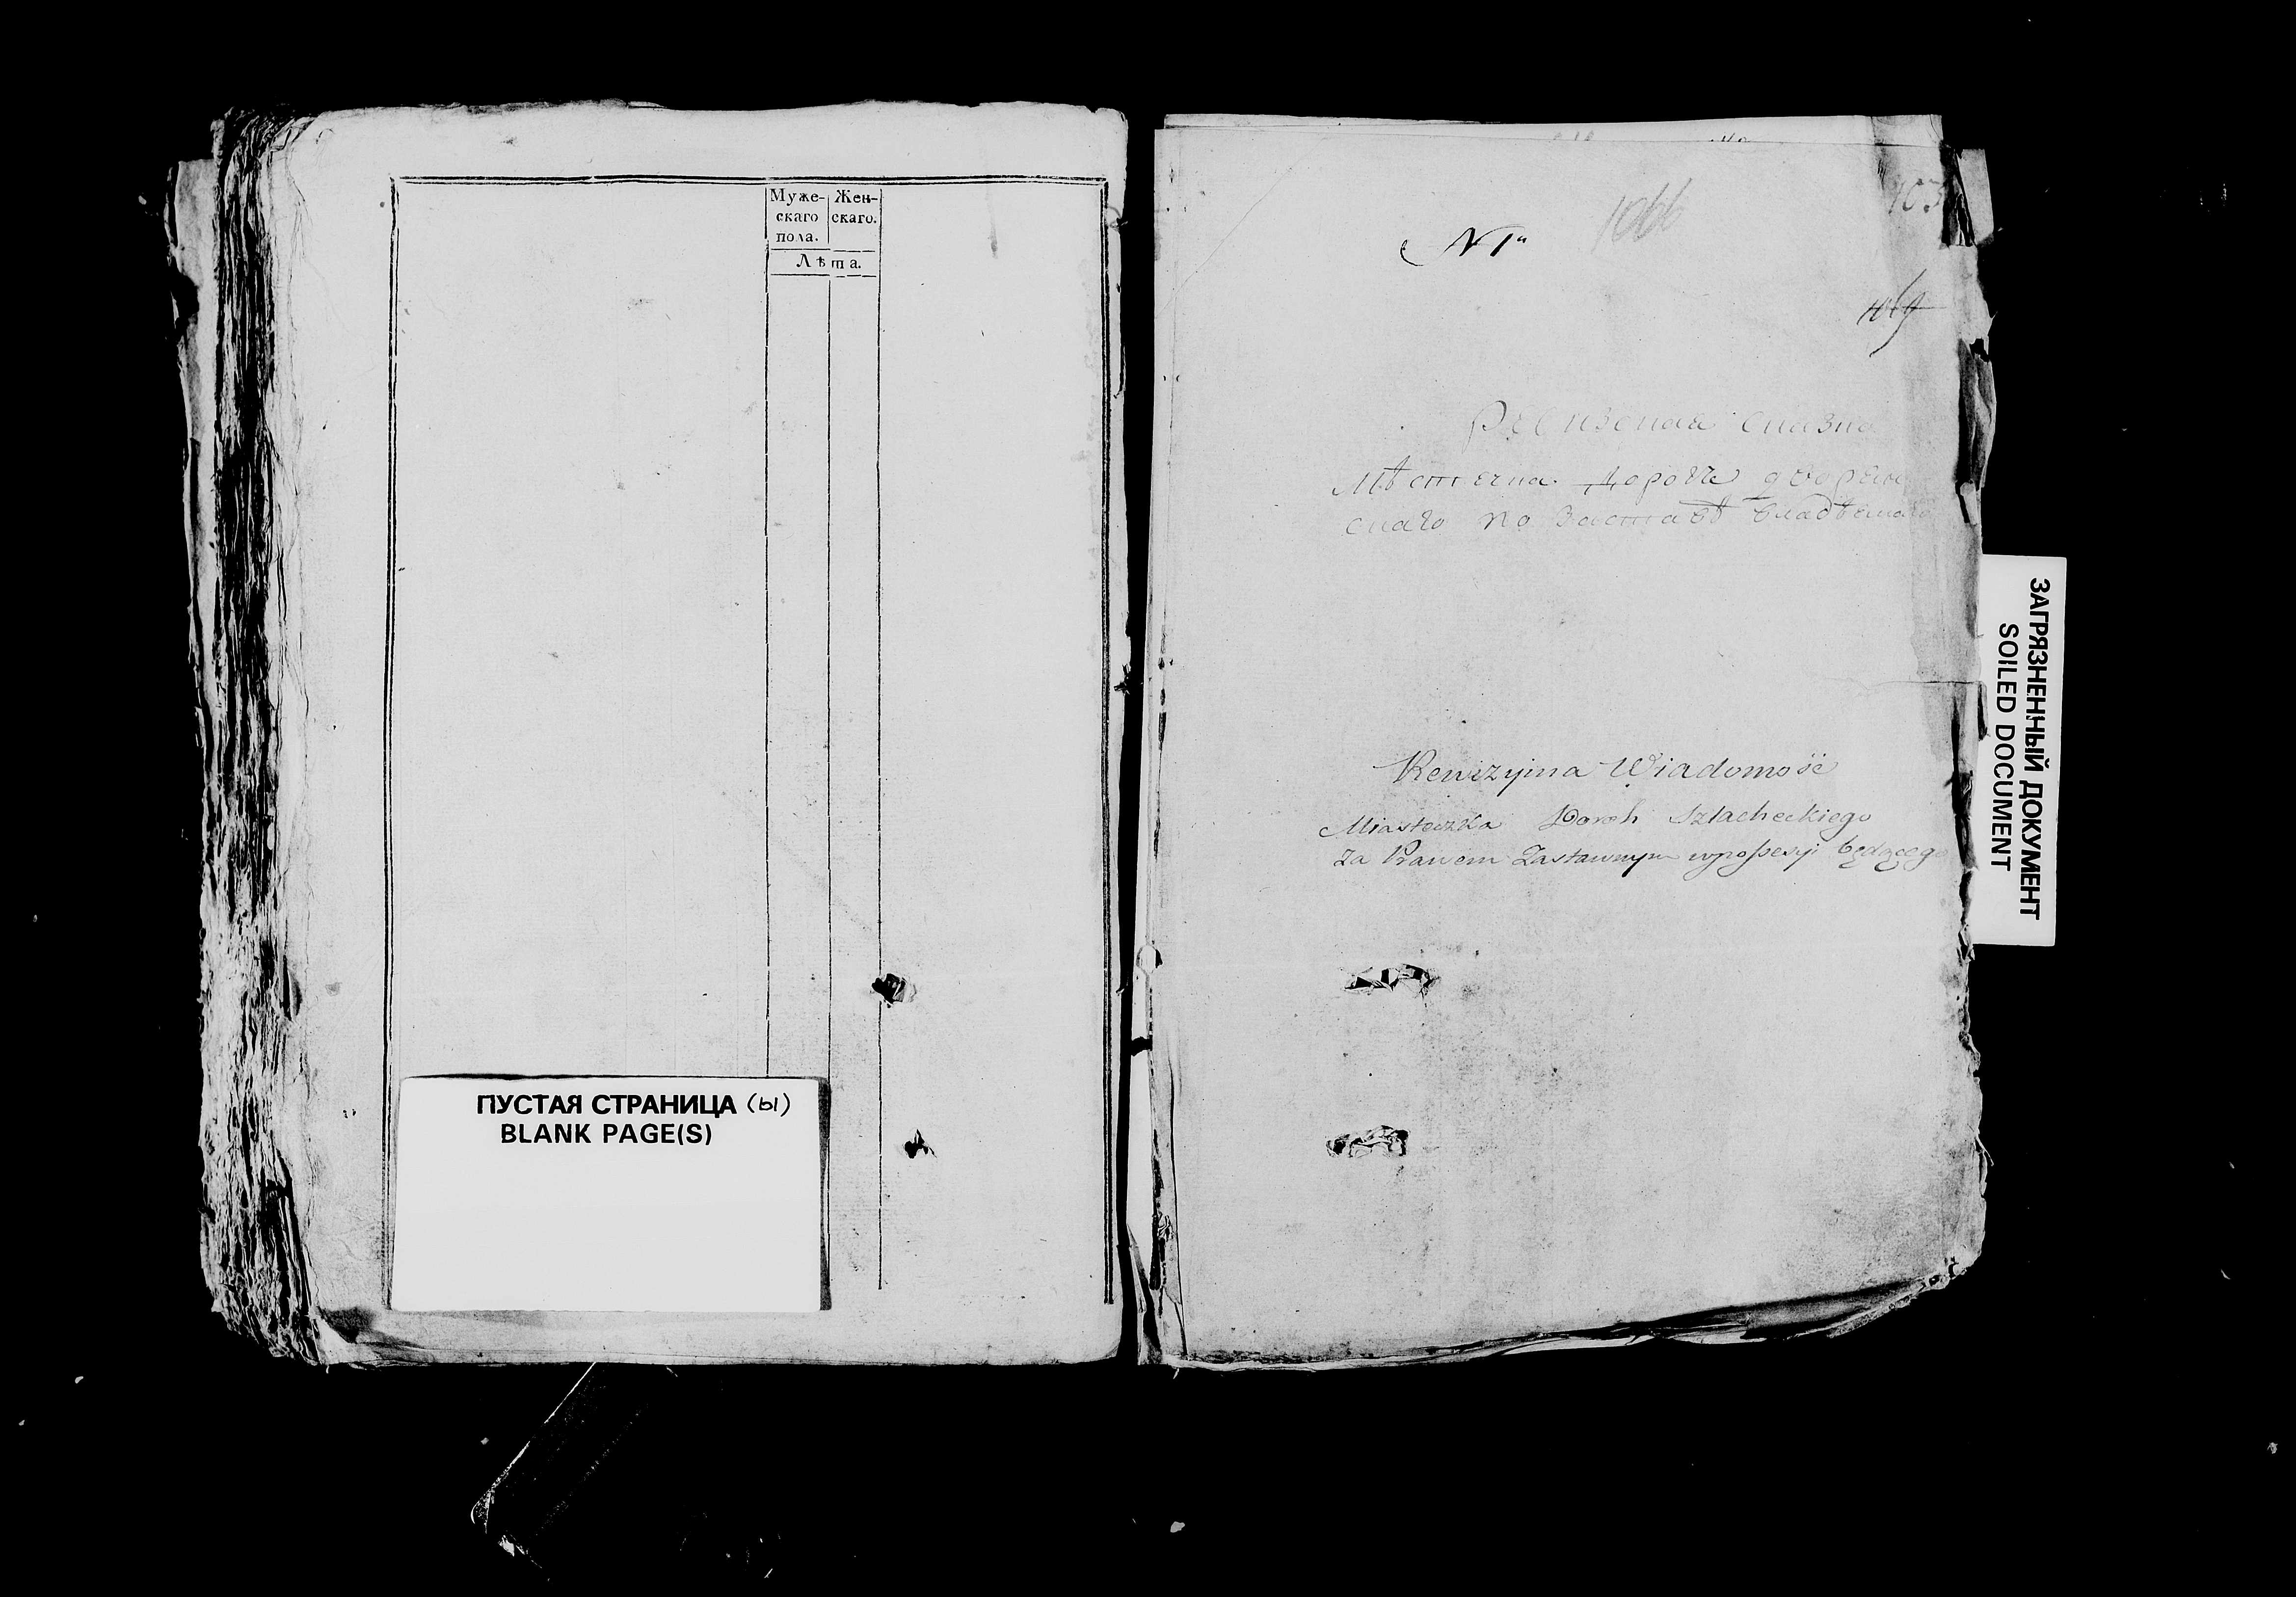 Муже- Жен-
скаго скаго.
пола.
Лѣта.
ПУСТАЯ СТРАНИЦА (ы)
BLANK PAGE(S)
1066
103
N 1"
1069
Ревизская сказка
Мѣстечка Дорогъ дворян
скаго по заставѣ владѣемаго
Rewizyjna Wiadomość
Miasteczka Doroh Szlacheckiego
za Prawem Zastawnym w possesyi będącego
ЗАГРЯЗНЕННЫЙ ДОКУМЕНТ
SOILED DOCUMENT